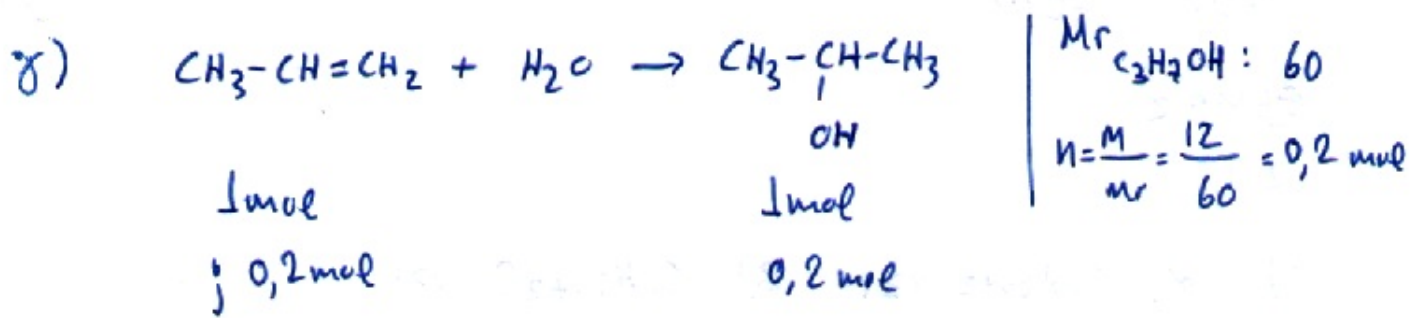 γ) CH₃-CH=CH₂ + H₂O → CH₃-CH-CH₃
OH
1mol 1mol
; 0,2mol 0,2 mol
Mr C₃H₇OH : 60
n = m/Mr = 12/60 = 0,2 mol